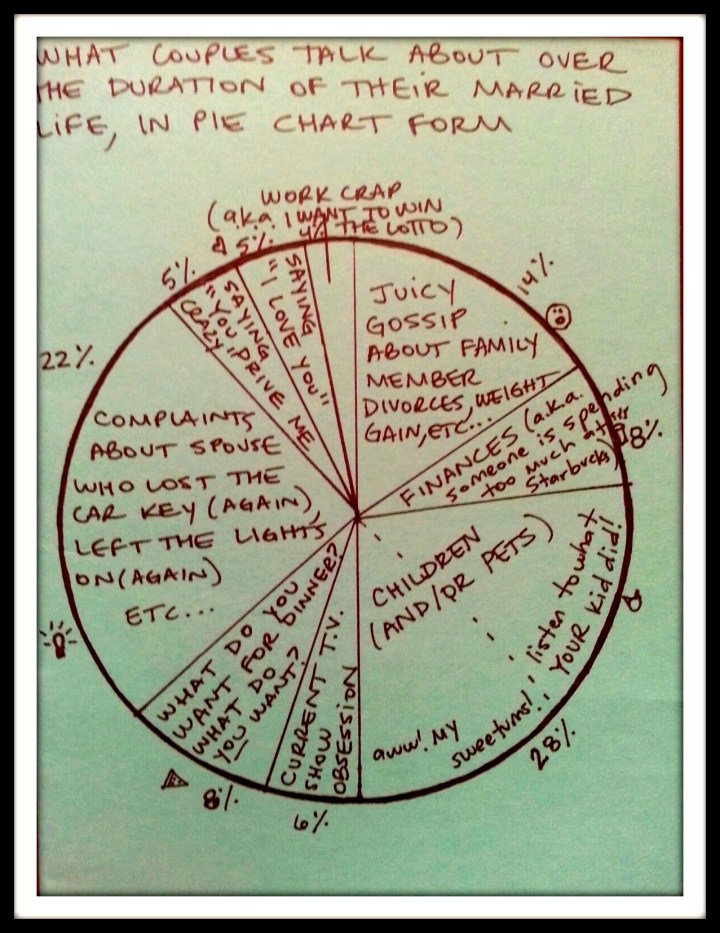 WHAT COUPLES TALK ABOUT OVER
THE DURATION OF THEIR MARRIED
LIFE, IN PIE CHART FORM
WORK CRAP
(a.k.a. I WANT TO WIN
THE LOTTO)
4%
14%
JUICY
GOSSIP
ABOUT FAMILY
MEMBER
DIVORCES, WEIGHT
GAIN, ETC...
8%
FINANCES (a.k.a.
someone is spending
too much at
Starbucks)
28%
CHILDREN
(AND/OR PETS)
aww! MY
sweetums!
listen to what
YOUR kid did!
6%
CURRENT T.V.
SHOW
OBSESSION
8%
WHAT DO YOU
WANT FOR DINNER?
WHAT DO
YOU WANT?
22%
COMPLAINTS
ABOUT SPOUSE
WHO LOST THE
CAR KEY (AGAIN),
LEFT THE LIGHTS
ON (AGAIN)
ETC...
5%
SAYING
"YOU DRIVE ME
CRAZY
5%
SAYING
"I LOVE YOU"